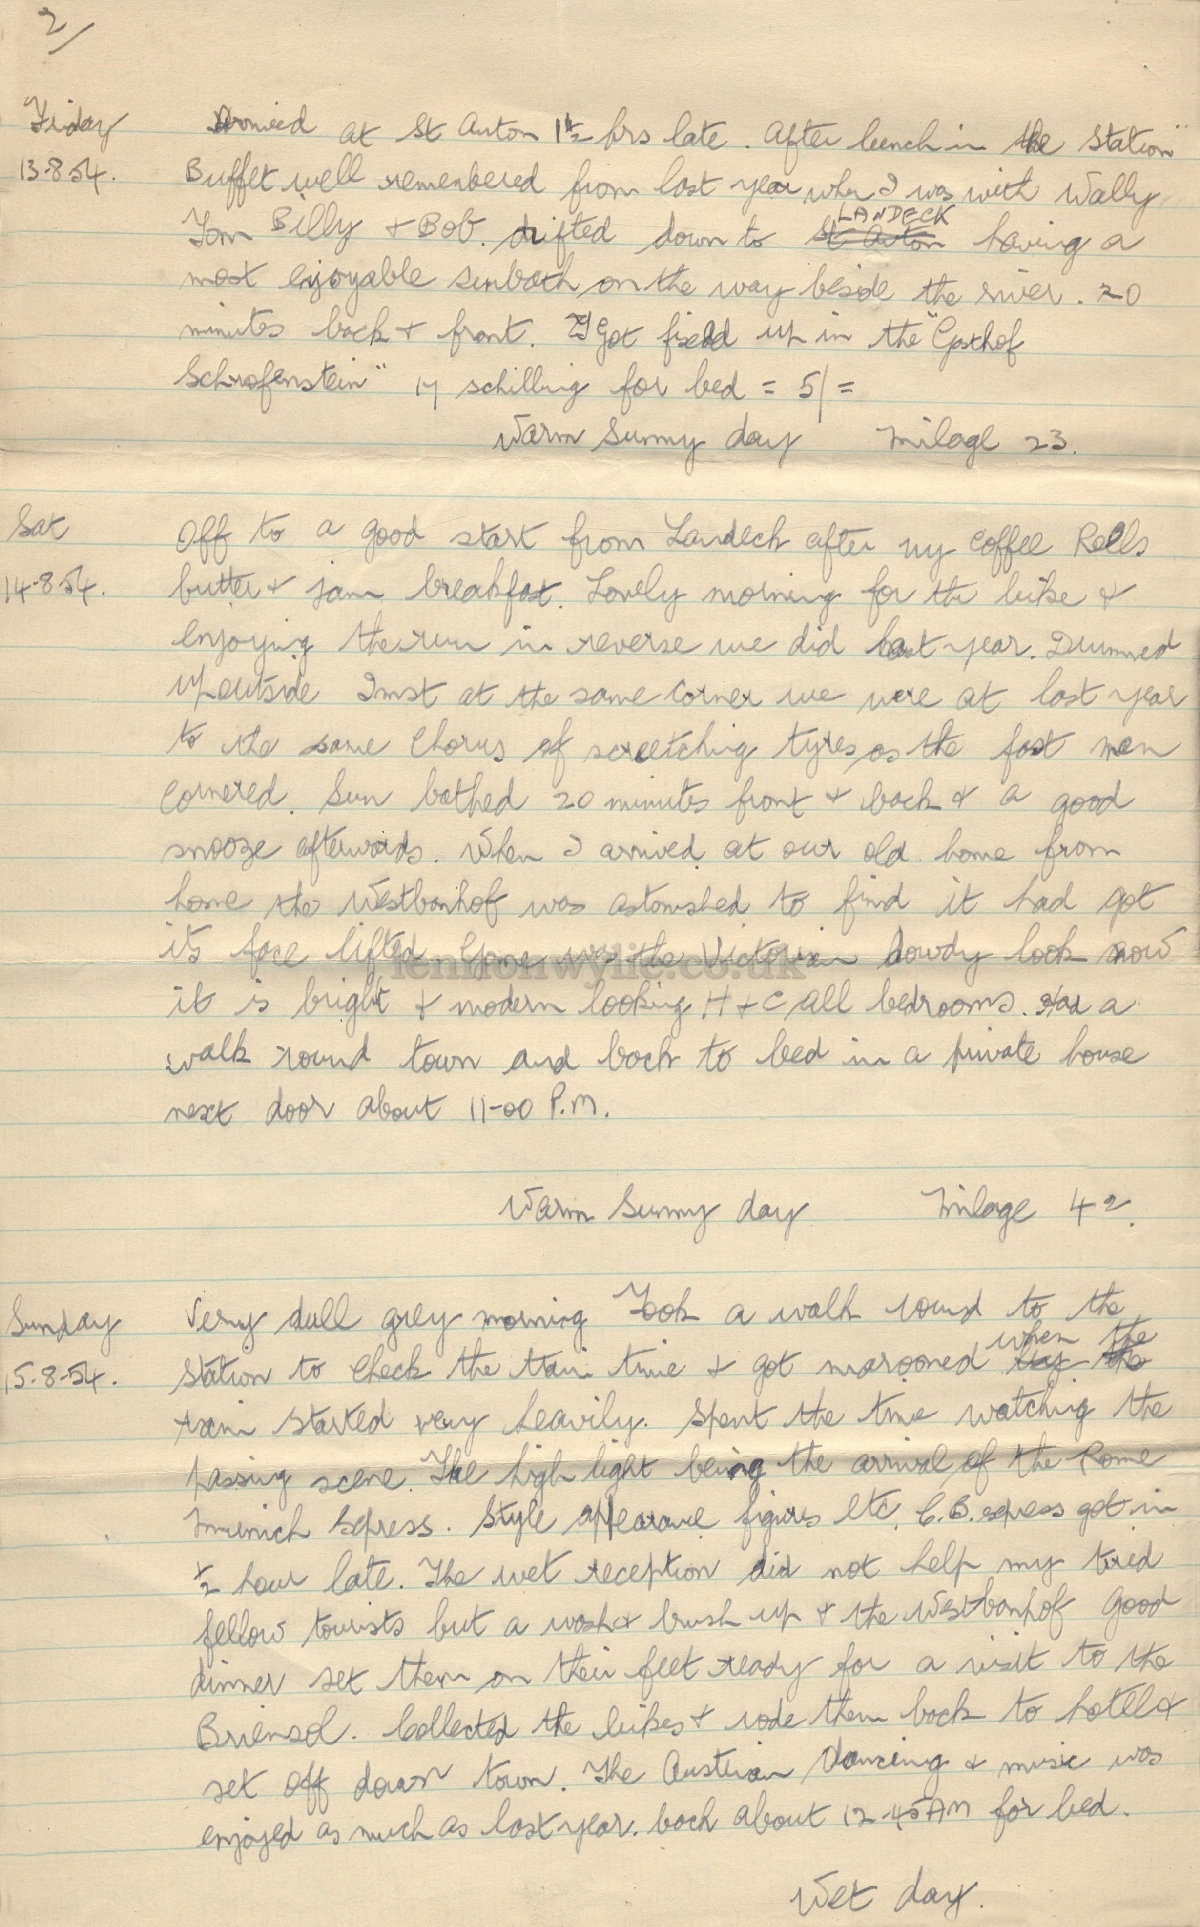 2/
Friday Arrived at St Anton 1½ hrs late. After lunch in the Station"
13-8-54. Buffet well remembered from last year when I was with Wally
Tom Billy + Bob. drifted down to St Anton LANDECK having a
most enjoyable sunbath on the way beside the river. 20
minutes back + front. I Got fixed up in the "Gasthof
Schrofenstein" 17 schilling for bed = 5/=
Warm Sunny day Milage 23.
Sat Off to a good start from Landeck after my coffee Rolls
14-8-54. butter + jam breakfast. Lovely morning for the bike +
enjoying the run in reverse we did last year. Drummed
up outside Imst at the same corner we were at last year
to the same Chorus of screetching tyres as the fast men
cornered. Sun bathed 20 minutes front + back + a good
snooze afterwards. When I arrived at our old home from
home the Westbanhof was astonished to find it had got
its face lifted. Gone was the Victorian dowdy look now
lennonwylie.co.uk
it is bright + modern looking H + C all bedrooms. Had a
walk round town and back to bed in a private house
next door about 11-00 P.M.
Warm Sunny day Milage 42.
Sunday Very dull grey morning Took a walk round to the
15-8-54. Station to Check the train time + got marooned by the when the
rain started very heavily. Spent the time watching the
passing scene. The high light being the arrival of the Rome
Munich Express. Style appearance figures etc. C.B. express got in
½ hour late. The wet reception did not help my tired
fellow tourists but a wash + brush up + the Westbanhof Good
dinner set them on their feet ready for a visit to the
Briensol. Collected the bikes + rode them back to hotel +
set off down town. The Austrian Dancing + music was
enjoyed as much as last year. back about 12-45AM for bed.
Wet day.